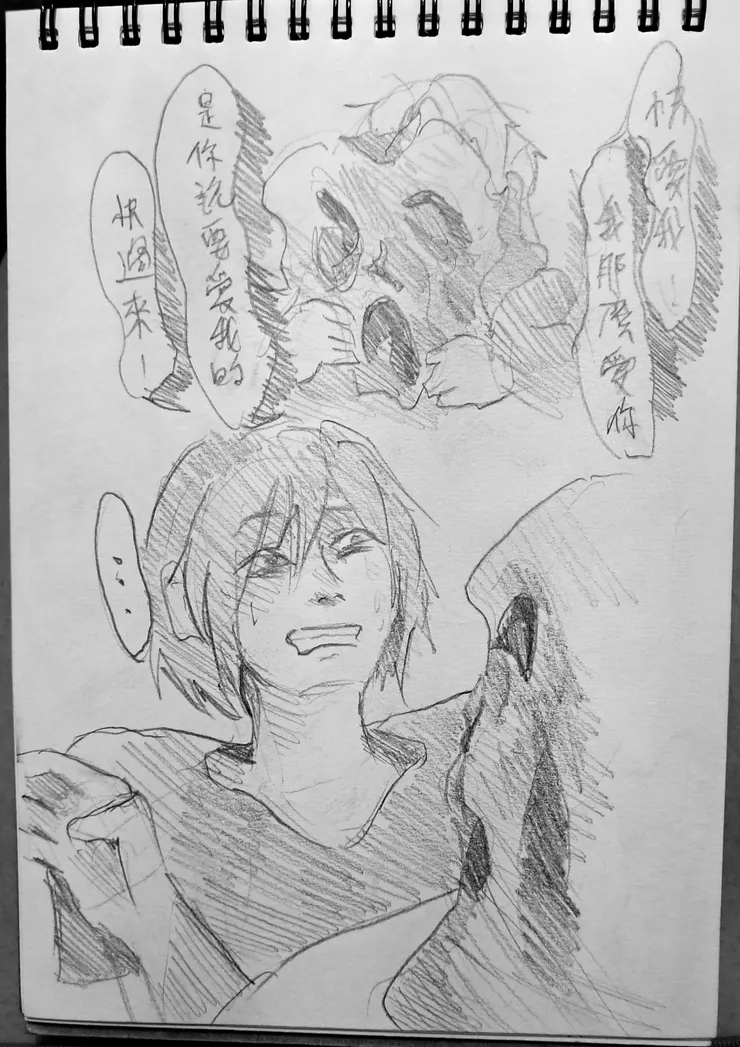 快愛我!
我那麼愛你
是你說要愛我的
快過來!
...